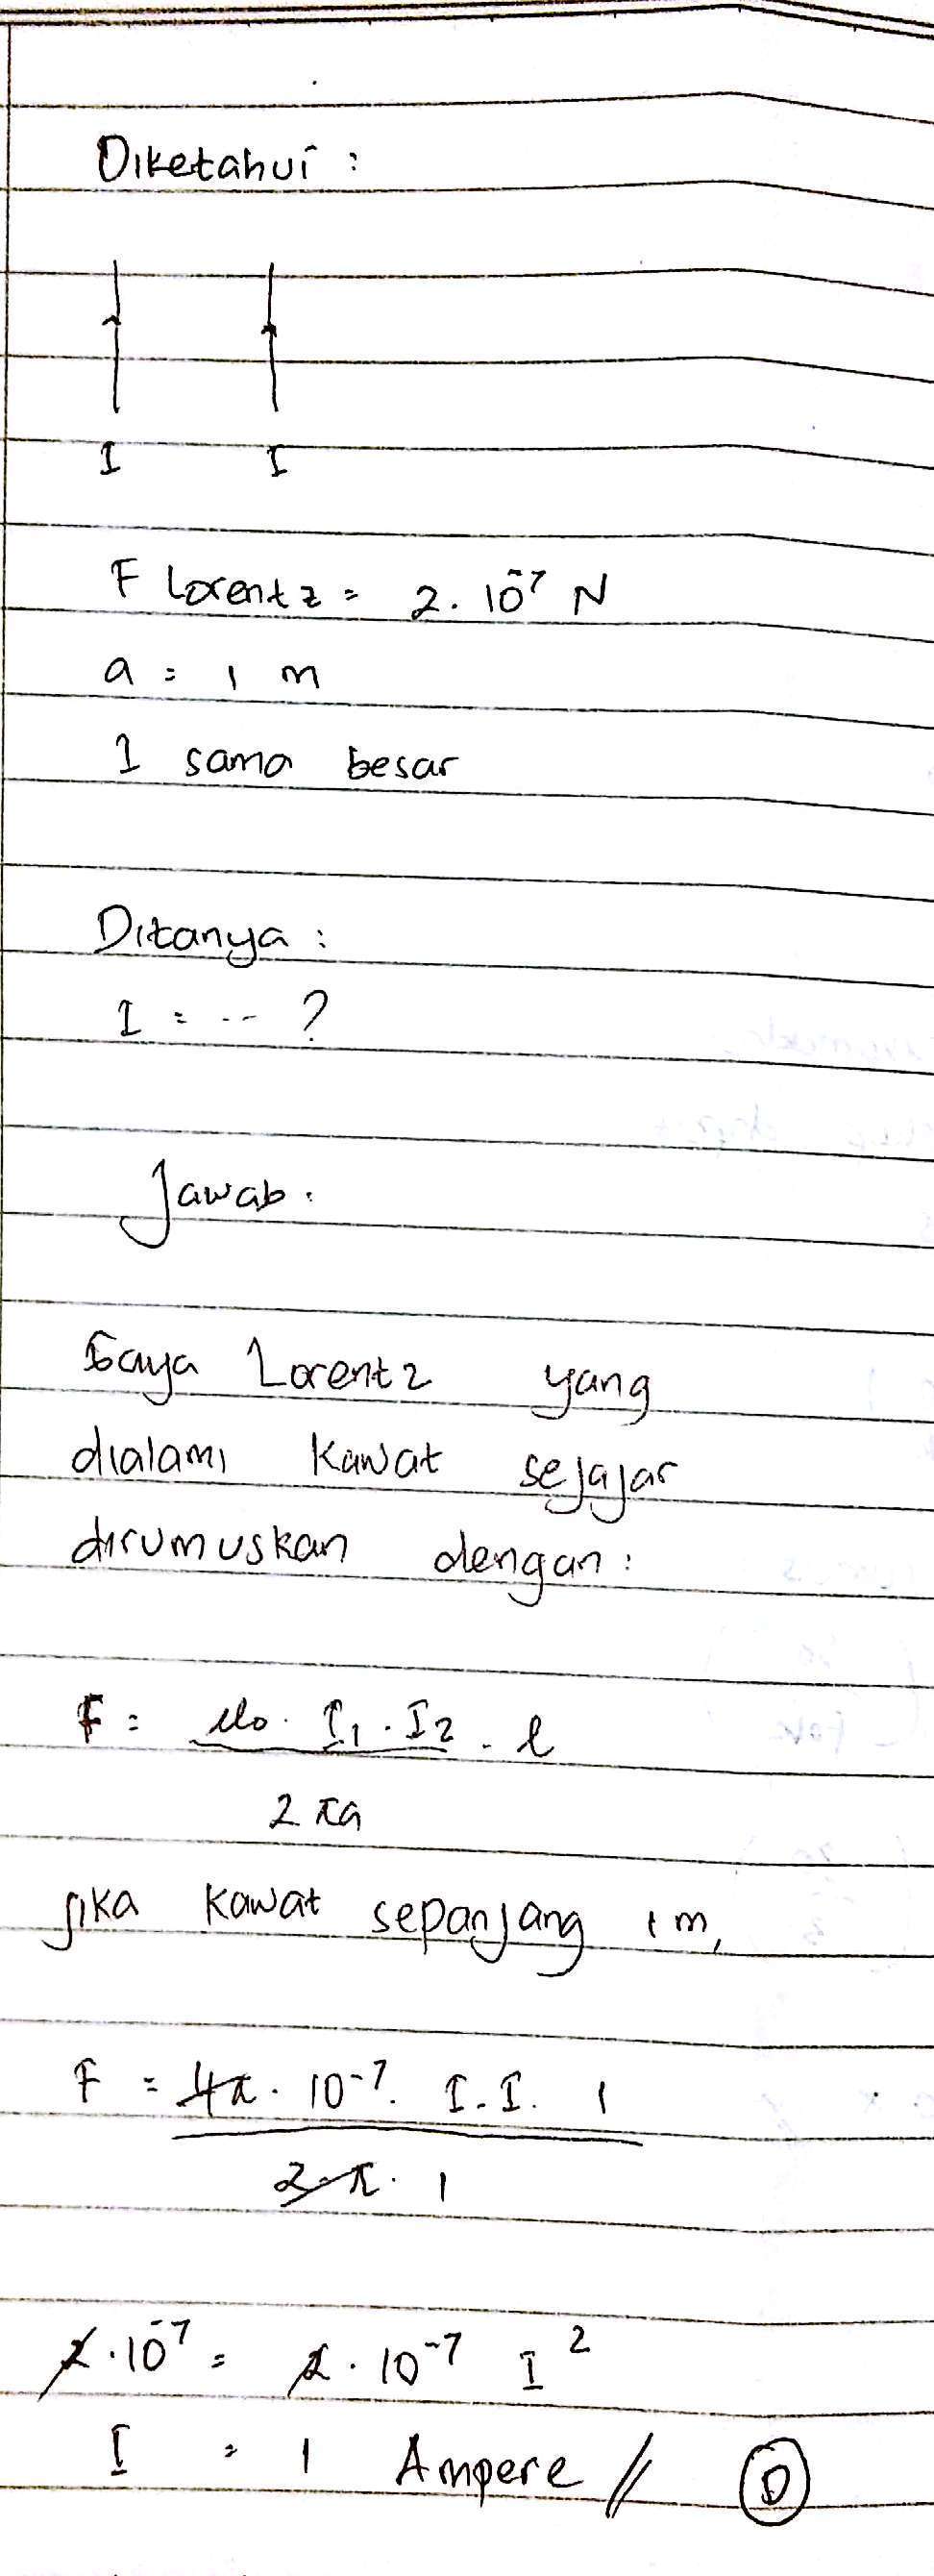 Diketahui :
I I
F Lorentz = 2. 10⁻⁷ N
a = 1 m
I sama besar
Ditanya :
I = ... ?
Jawab.
Gaya Lorentz yang
dialami kawat sejajar
dirumuskan dengan :
F = μo. I₁ . I₂ . l
2 πa
jika kawat sepanjang 1 m,
F = 4π. 10⁻⁷. I. I. 1
2 π. 1
2.10⁻⁷ = 2. 10⁻⁷ I²
I = 1 Ampere // D